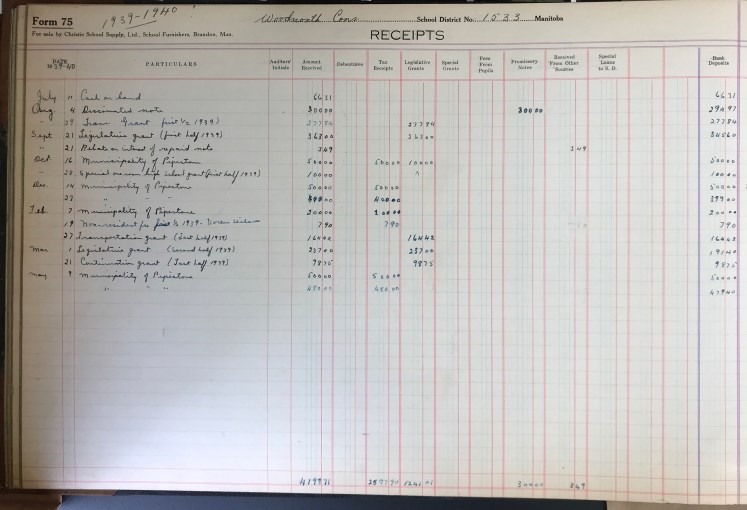 Form 75 1939-1940 Woodnorth Cons. School District No. 1533 Manitoba
For sale by Christie School Supply, Ltd., School Furnishers, Brandon, Man.
RECEIPTS
DATE 1939-40 PARTICULARS Auditors' Initials Amount Received Debentures Tax Receipts Legislative Grants Special Grants Fees From Pupils Promissory Notes Received From Other Sources Special Loans to S. D. Bank Deposits
July 11 Cash on hand 6631 6631
Aug 4 Discounted note 30000 30000 29497
" 29 Trans. Grant first 1/2 1939) 27784 27784 27784
Sept 21 Legislative grant (first half 1939) 36300 36300 34560
" 21 Rebate on interest of repaid note 349 349
Oct 16 Municipality of Pipestone 50000 50000 50000
" 28 Special one room high school grant (first half 1939) 10000 10000 10000
Dec 14 Municipality of Pipestone 50000 50000 50000
28 " " " 40000 40000 39900
Feb 7 Municipality of Pipestone 20000 20000 20000
19 Non-resident fee first 1/2 1939 - 790 790 790
27 Transportation grant (Last half 1939) 16442 16442 16442
Mar 1 Legislative grant (second half 1939) 23700 23700 19140
21 Continuation grant (Last half 1939) 9875 9875 9875
May 9 Municipality of Pipestone 50000 50000 50000
" " " 45000 45000 47940
419771 259790 124101 30000 349